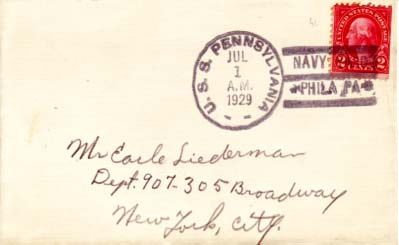 UNITED STATES POSTAGE
2 CENTS 2
U. S. S. PENNSYLVANIA
JUL
1
A.M.
1929
NAVY
PHILA PA
Mr Earle Liederman
Dept. 907-305 Broadway
New York, City.